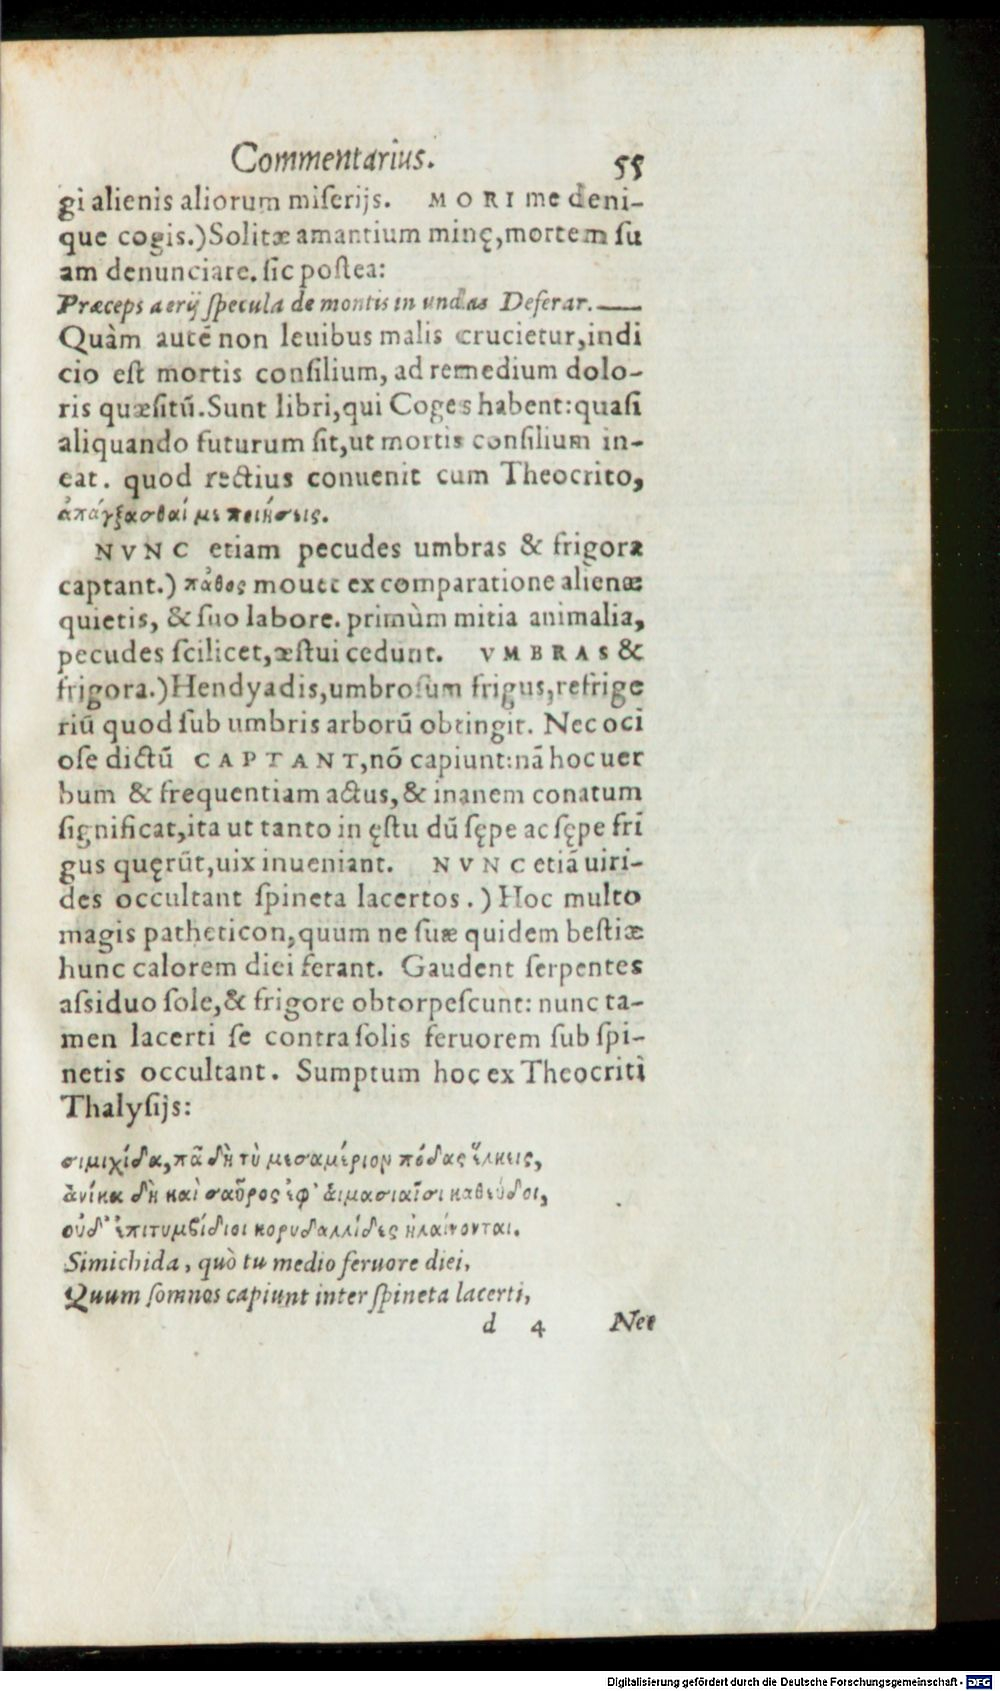 Commentarius. 55
gi alienis aliorum miſerijs. MORI me deni-
que cogis.) Solitæ amantium minę, mortem ſu
am denunciare. ſic poſtea:
Præceps aerij ſpecula de montis in undas Deferar. —
Quàm autē non leuibus malis crucietur, indi
cio eſt mortis conſilium, ad remedium dolo-
ris quæſitū. Sunt libri, qui Coges habent: quaſi
aliquando futurum ſit, ut mortis conſilium in-
eat. quod rectius conuenit cum Theocrito,
ἀπάγξασθαί με ποιήσεις.
NVNC etiam pecudes umbras & frigora
captant.) πάθος mouet ex comparatione alienæ
quietis, & ſuo labore. primùm mitia animalia,
pecudes ſcilicet, æſtui cedunt. VMBRAS &
frigora.) Hendyadis, umbroſum frigus, refrige
riū quod ſub umbris arborū obtingit. Nec oci
oſe dictū CAPTANT, nō capiunt: nā hoc uer
bum & frequentiam actus, & inanem conatum
ſignificat, ita ut tanto in ęſtu dū ſępe ac ſępe fri
gus quęrūt, uix inueniant. NVNC etiā uiri-
des occultant ſpineta lacertos.) Hoc multo
magis patheticon, quum ne ſuæ quidem beſtiæ
hunc calorem diei ferant. Gaudent ſerpentes
aſsiduo ſole, & frigore obtorpeſcunt: nunc ta-
men lacerti ſe contra ſolis feruorem ſub ſpi-
netis occultant. Sumptum hoc ex Theocriti
Thalyſijs:
σιμιχίδα, πᾶ δὴ τὺ μεσαμέριον πόδας ἕλκεις,
ἁνίκα δὴ καὶ σαῦρος ἐφ' αἱμασιαῖσι καθεύδοι,
οὐδ' ἐπιτυμβίδιοι κορυδαλλίδες ἠλαίνονται.
Simichida, quò tu medio feruore diei,
Quum ſomnos capiunt inter ſpineta lacerti,
d 4 Nec
Digitalisierung gefördert durch die Deutsche Forschungsgemeinschaft - DFG